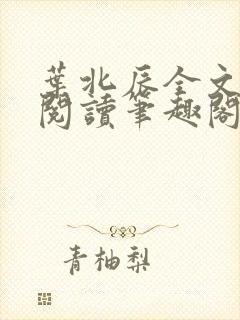 葉北辰全文
閱讀筆趣閣
青柚梨